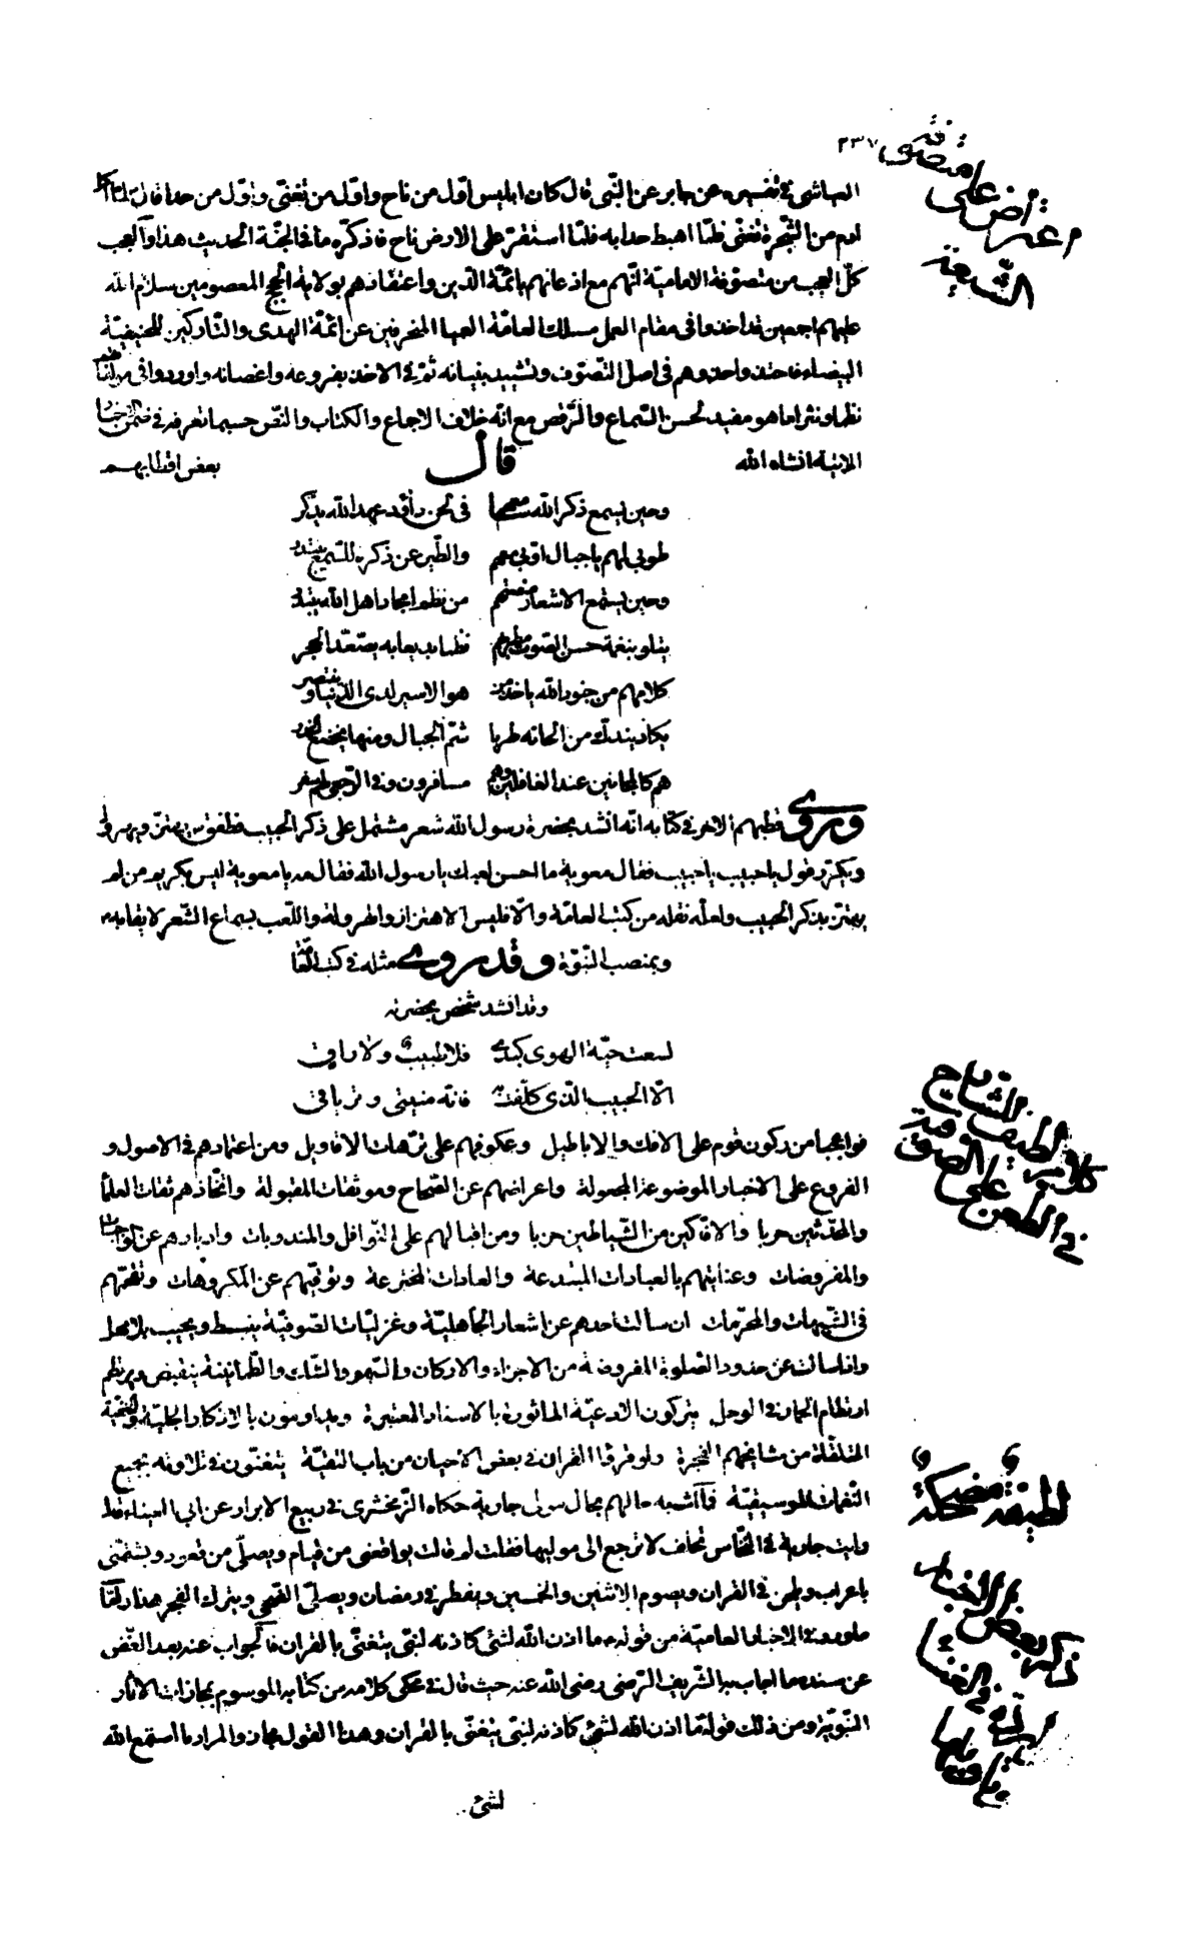 ٣٣٧
اعتراض على متصوفة
الشيعة
العياشي في تفسيره عن جابر عن النبي قال كان ابليس اول من ناح واول من تغنى واول من حدا قال لما اكل
ادم من الشجرة تغنى فلما اهبط حدا به فلما استقر على الارض ناح فاذكره ما في الجنة الحديث هذا والعجب
كل العجب من متصوفة الامامية انهم مع اذعانهم بائمة الدين واعتقادهم بولاية الحجج المعصومين سلام الله
عليهم اجمعين قد اخذوا في مقام العمل مسلك العامة العميا المنحرفين عن ائمة الهدى والتاركين للحنيفية
البيضاء فاخذوا حذوهم في اصل التصوف وتشييد بنيانه ثم في الاخذ بفروعه واغصانه واوردوا في مؤلفاتهم
نظما ونثرا ما هو مفيد لحسن السماع والرقص مع انه خلاف الاجماع والكتاب والنص حسبما تعرفه في ضمن
الاتية انشاء الله قال بعض اقطابهم
وحين يسمع ذكر الله في لحن عهد الله يذكر
طوبى لهم يا جبال اوبي معهم والطير عن ذكره للسمع
وحين يستمع الاشعار من نظم
يتلو بنغمة حسن الصوت فظل يدعا به يصعد الحجر
كلامهم من جنود الله هو الاسير لدى الدنيا و
يكاد يندك من الحانه طربا شم الجبال ومنها
هم كالمجانين عند الغافلين وهم مسافرون وفي
وروى قطبهم الاخر في كتابه انه انشد بحضرة رسول الله شعر مشتمل على ذكر الحبيب فطفق يهتز ويهرول
ويكرر قول يا حبيب يا حبيب فقال معوية ما احسن لعبك يا رسول الله فقال مه يا معوية ليس بكريم من لم
يهتز بذكر الحبيب ولعله نقله من كتب العامة والا فليس الاهتزاز والهرولة واللعب بسماع الشعر لايقا به
وبمنصب النبوة وقد روى مثله في كتب العامة
وقد انشد شخص بحضرته
لسعت حية الهوى كبدي فلا طبيب ولا راقي
الا الحبيب الذي كلفت فانه منيتي وترياقي
كلام لطيف للشارح
في الطعن على الصوفية
فواعجبا من ركون قوم على الافك والاباطيل وعكوفهم على ترهات الاقاويل ومن اعتمادهم في الاصول و
الفروع على الاخبار الموضوعة المجعولة واعراضهم عن الصحاح وموثقات المقبولة واتخاذهم ثقات العلماء
والمحدثين حربا والافاكين من الشياطين حزبا ومن اقبالهم على النوافل والمندوبات وادبارهم عن الواجبات
والمفروضات وعنايتهم بالعبادات المبتدعة والعادات المخترعة وتوقيهم عن المكروهات وتقحمهم
في الشبهات والمحرمات ان سالت احدهم عن اشعار الجاهلية وغزليات الصوفية ينبسط ويجيب بلا مهل
واذا سالت عن حدود الصلوة المفروضة من الاجزاء والاركان والسهو والشك والطمانينة ينقبض ويرتطم
ارتطام الحمار في الوحل يتركون الادعية الماثورة بالاسناد المعتبرة ويداومون بالاذكار الجلية والخفية
المتلقاة من مشايخهم الفجرة ولو قرؤا القران في بعض الاحيان من باب التقية يتغنون في تلاوته بجميع
لطيفة مضحكة
النغمات الموسيقية فما اشبه حالهم بحال مولى جارية حكاه الزمخشري في ربيع الابرار عن ابي العيناء قال
رايت جارية في النخاس تحلف لا ترجع الى موليها فقلت لم قالت يواقعني من قيام ويصلي من قعود ويشتمني
باعراب ويلحن في القران ويصوم الاثنين والخميس ويفطر في رمضان ويصلي الضحى ويترك الفجر هذا واما
ذكر بعض الاخبار
في الغناء
ما ورد في الاخبار العامية من قوله ما اذن الله لشئ كاذنه لنبي يتغنى بالقران فالجواب عنه بعد الغض
عن سنده ما اجاب به الشريف الرضي رضي الله عنه حيث قال في محكى كلامه من كتابه الموسوم بمجازات الاثار
النبوية ومن ذلك قوله ما اذن الله لشئ كاذنه لنبي يتغنى بالقران وهذا القول مجاز والمراد ما استمع الله
لشئ